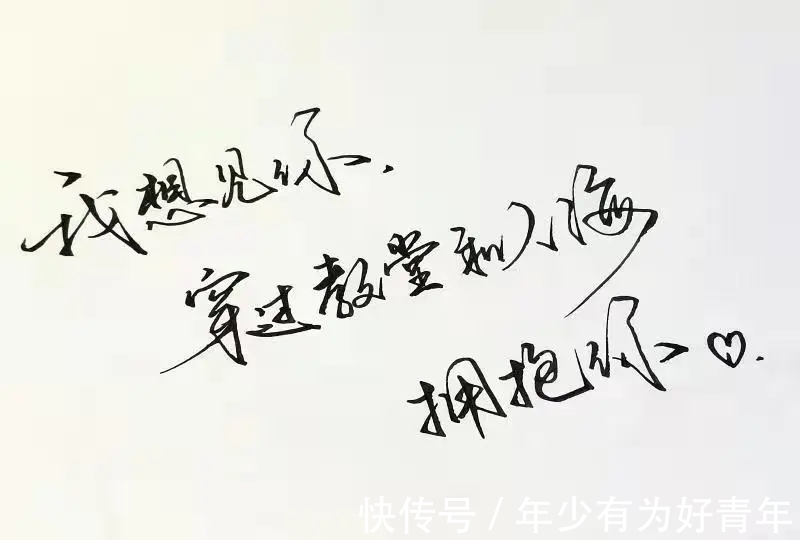 我想见你.
穿过教堂和人海
拥抱你♡.
快传号 / 年少有为好青年